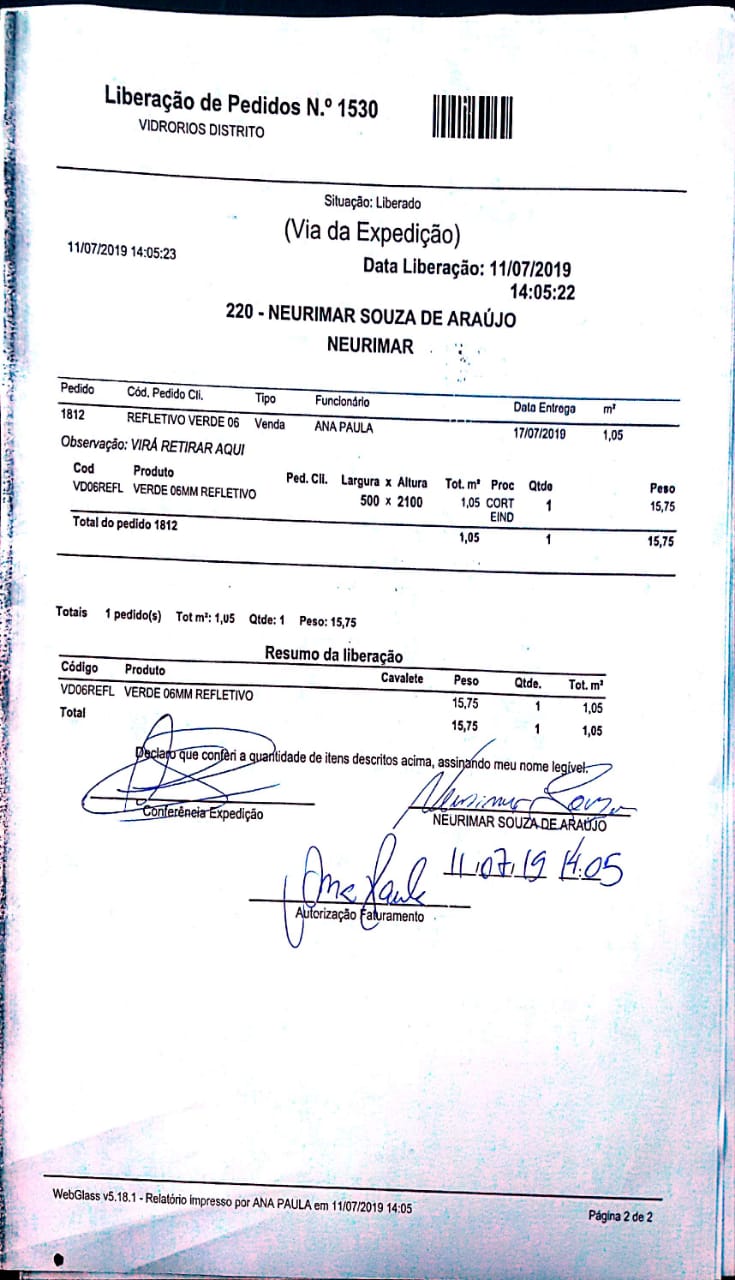 Liberação de Pedidos N.º 1530
VIDRORIOS DISTRITO
Situação: Liberado
(Via da Expedição)
11/07/2019 14:05:23
Data Liberação: 11/07/2019
14:05:22
220 - NEURIMAR SOUZA DE ARAÚJO
NEURIMAR
Pedido Cód. Pedido Cli. Tipo Funcionário Data Entrega m²
1812 REFLETIVO VERDE 06 Venda ANA PAULA 17/07/2019 1,05
Observação: VIRÁ RETIRAR AQUI
Cod Produto Ped. Cli. Largura x Altura Tot. m² Proc Qtde Peso
VD06REFL VERDE 06MM REFLETIVO 500 x 2100 1,05 CORT 1 15,75
EIND
Total do pedido 1812 1,05 1 15,75
Totais 1 pedido(s) Tot m²: 1,05 Qtde: 1 Peso: 15,75
Resumo da liberação
Código Produto Cavalete Peso Qtde. Tot. m²
VD06REFL VERDE 06MM REFLETIVO 15,75 1 1,05
Total 15,75 1 1,05
Declaro que conferi a quantidade de itens descritos acima, assinando meu nome legível.
Neurimar Souza
Conferência Expedição NEURIMAR SOUZA DE ARAÚJO
Ana Paula 11.07.19 14:05
Autorização Faturamento
WebGlass v5.18.1 - Relatório impresso por ANA PAULA em 11/07/2019 14:05
Página 2 de 2